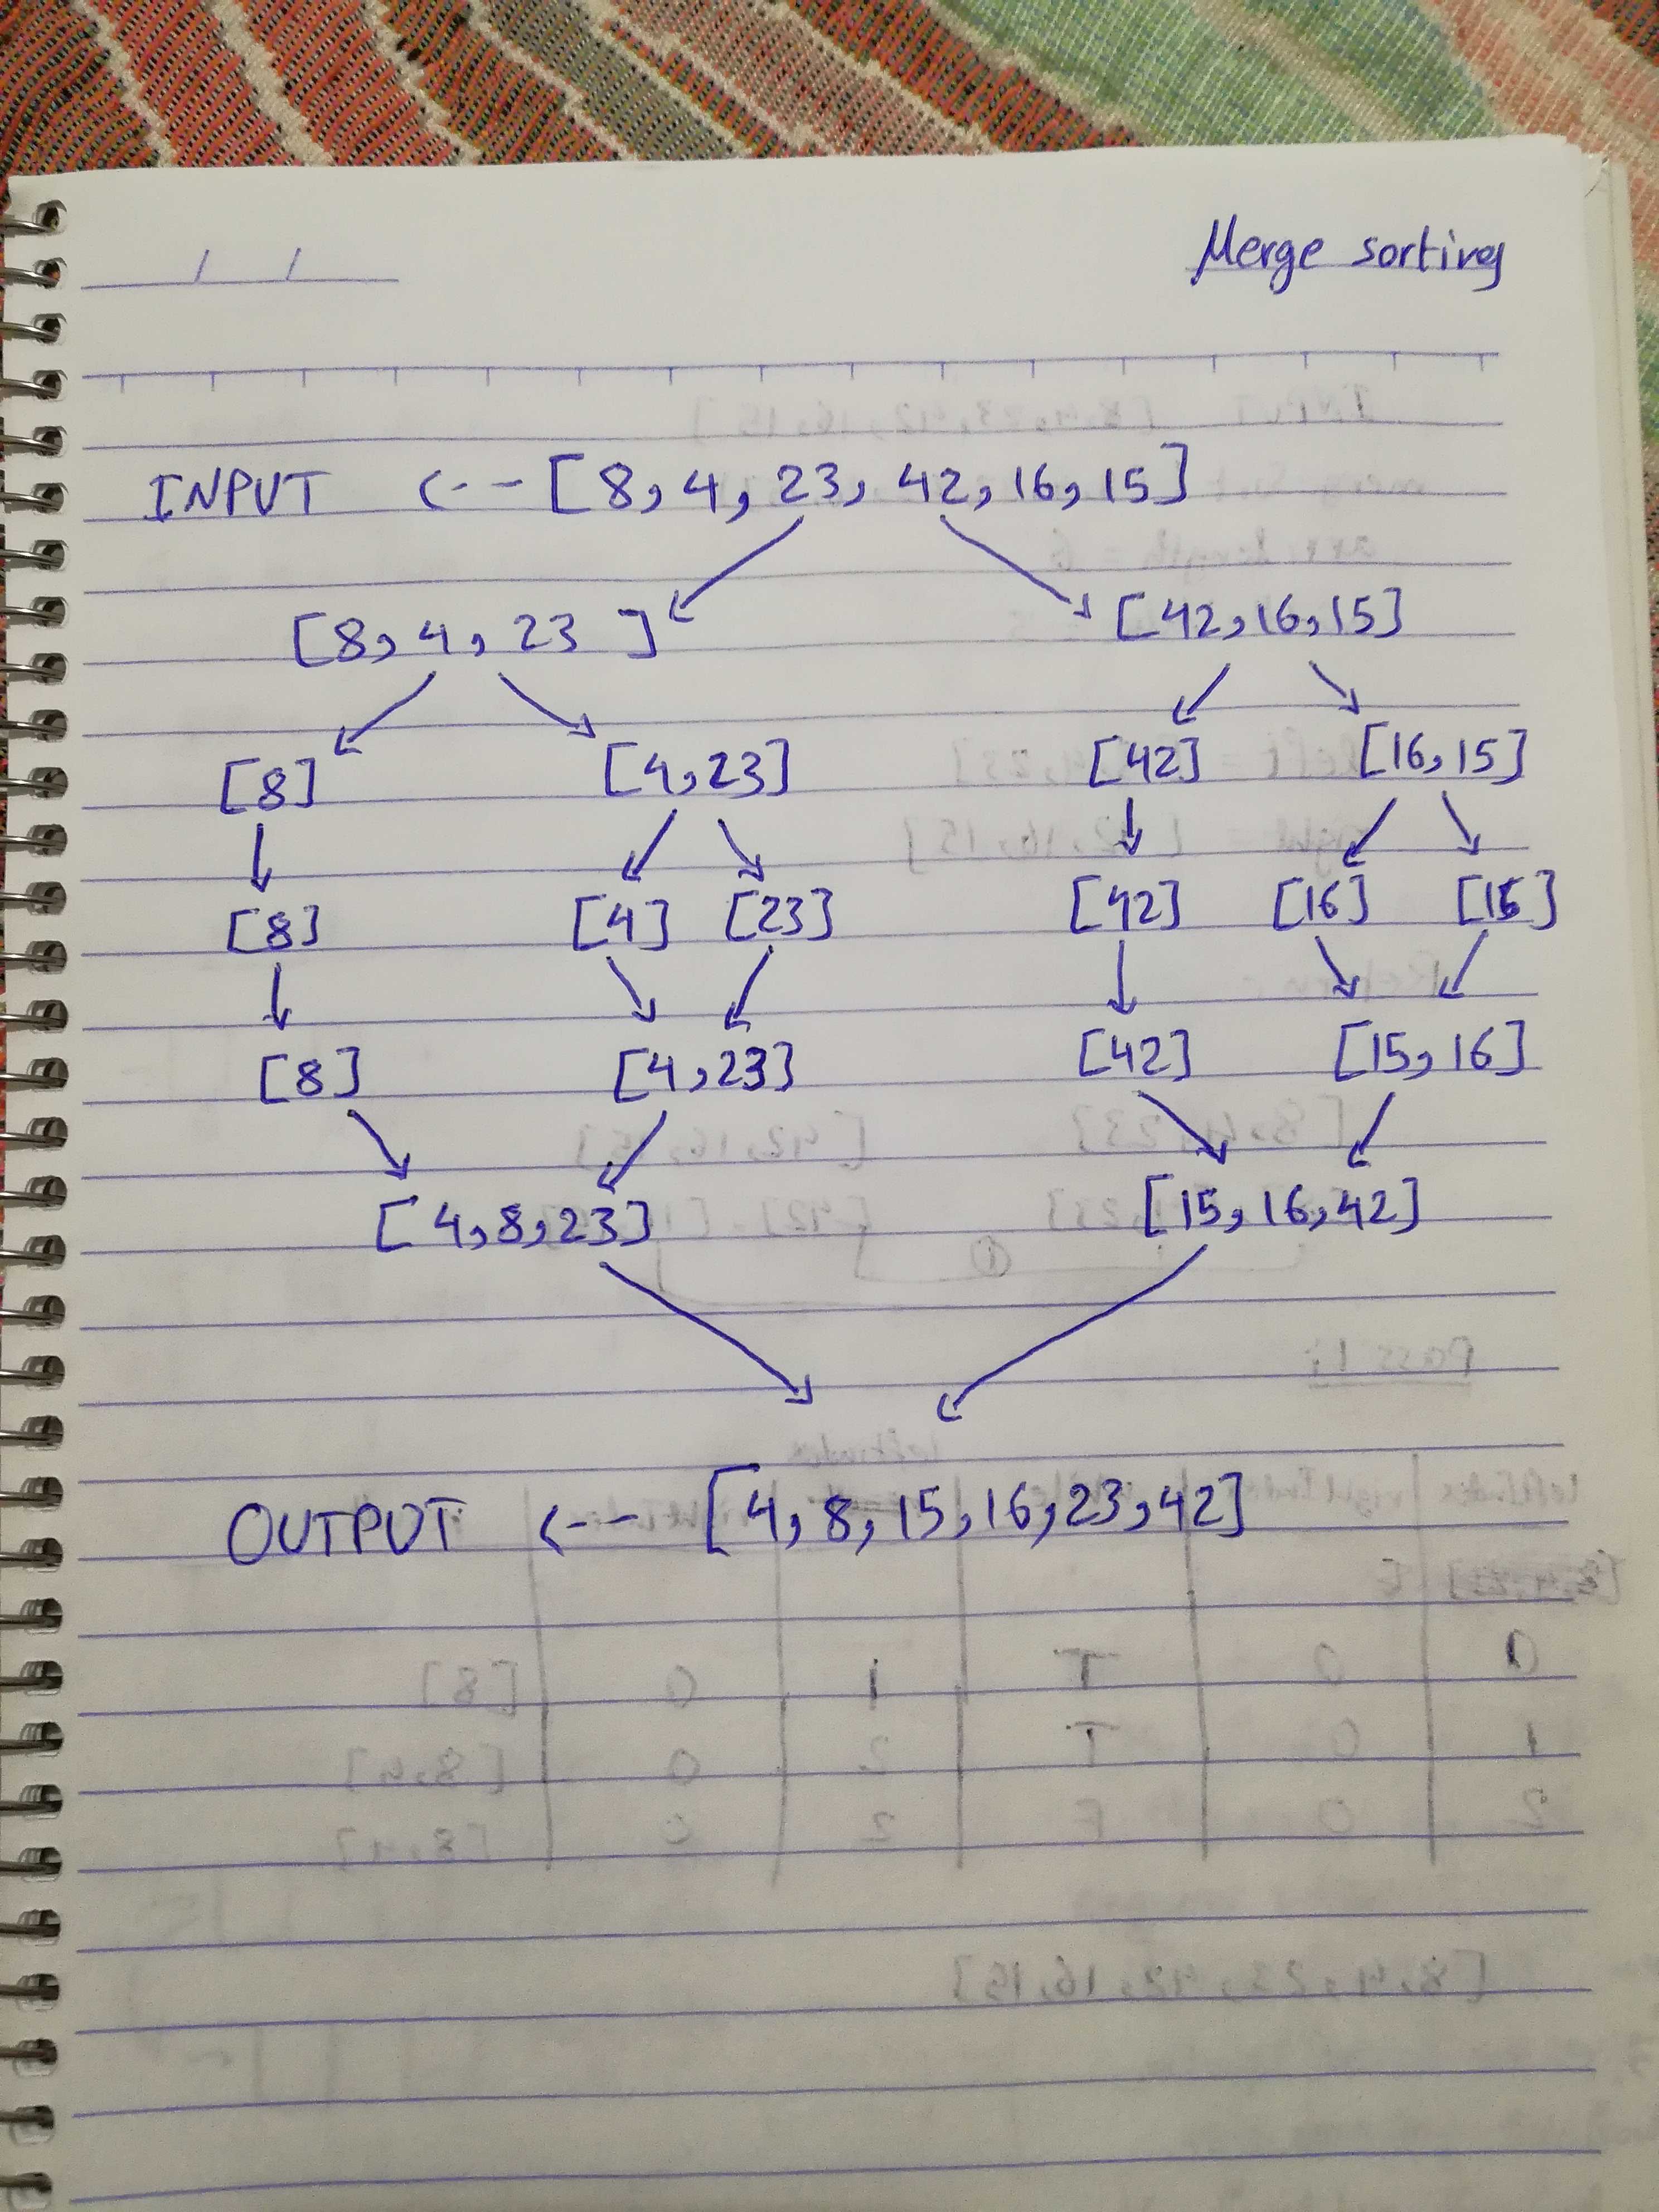 Merge sorting
INPUT <-- [8, 4, 23, 42, 16, 15]
[8, 4, 23 ] [42, 16, 15]
[8] [4, 23] [42] [16, 15]
[8] [4] [23] [42] [16] [15]
[8] [4, 23] [42] [15, 16]
[4, 8, 23] [15, 16, 42]
OUTPUT <-- [4, 8, 15, 16, 23, 42]